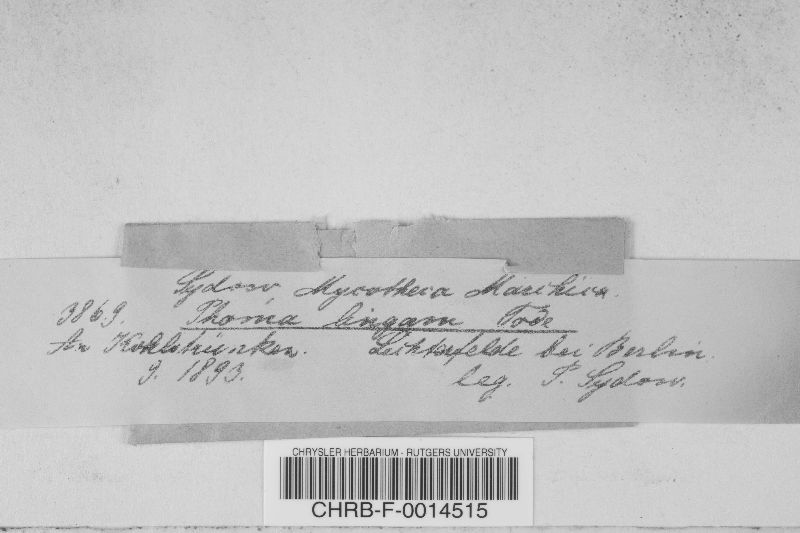 Sydow Mycotheca Marchica.
3869. Phoma lingam Tode
An Kohlstrünken. Lichterfelde bei Berlin.
9. 1893. leg. P. Sydow.
CHRYSLER HERBARIUM - RUTGERS UNIVERSITY
CHRB-F-0014515